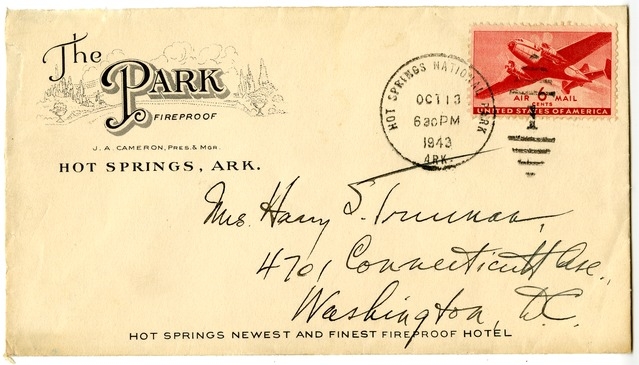 The
PARK
FIREPROOF
J. A. CAMERON, PRES. & MGR.
HOT SPRINGS, ARK.
HOT SPRINGS NATIONAL PARK
OCT 13
6 30 PM
1943
ARK.
6
CENTS
AIR MAIL
UNITED STATES OF AMERICA
1
Mrs. Harry S. Truman,
4701 Connecticutt Ave.,
Washington, D.C.
HOT SPRINGS NEWEST AND FINEST FIREPROOF HOTEL